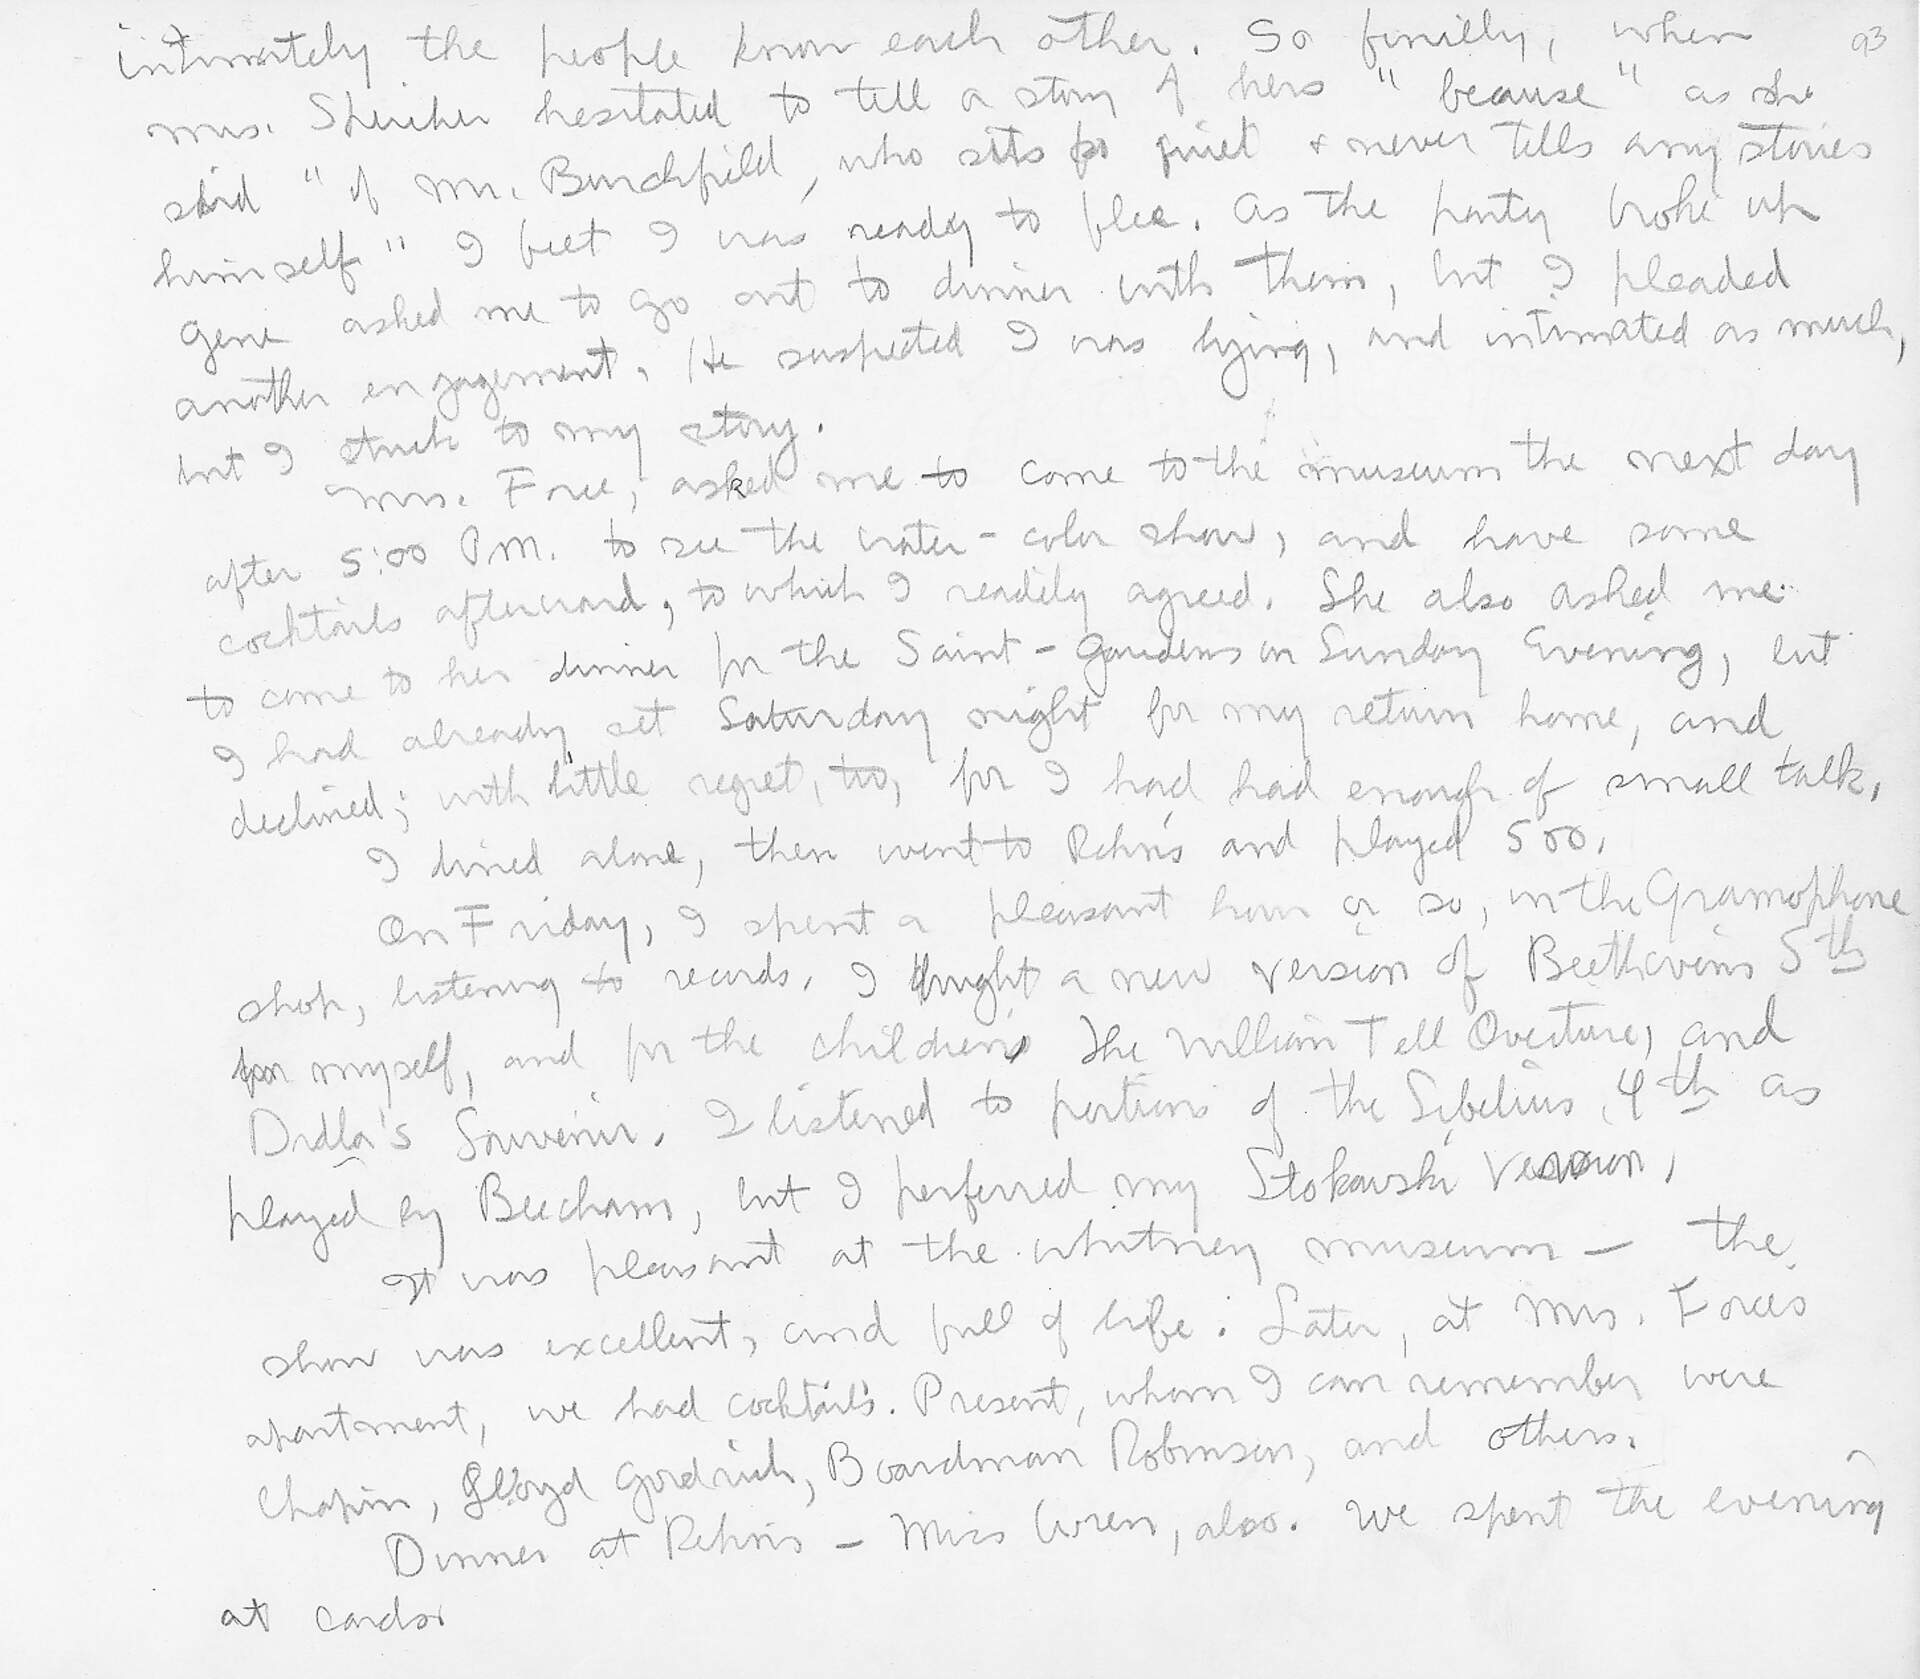 intimately the people know each other. So finally, when 93
Mrs. Speicher hesitated to tell a story of hers "because" as she
said "of Mr. Burchfield, who sits so quiet & never tells any stories
himself" I felt I was ready to flee. As the party broke up
Gene asked me to go out to dinner with them, but I pleaded
another engagement. He suspected I was lying, and intimated as much,
but I stuck to my story.
Mrs. Force, asked me to come to the museum the next day
after 5:00 P.M. to see the water-color show, and have some
cocktails afterward, to which I readily agreed. She also asked me
to come to her dinner for the Saint-Gaudens on Sunday Evening, but
I had already set Saturday night for my return home, and
declined; with little regret, too, for I had had enough of small talk.
I dined alone, then went to Rehn's and played 500.
On Friday, I spent a pleasant hour or so, in the Gramophone
shop, listening to records. I bought a new version of Beethoven's 5th
for myself, and for the children's The William Tell Overture, and
Drdla's Souvenir. I listened to portions of the Sibelius 4th as
played by Beecham, but I perferred my Stokowski version.
It was pleasant at the Whitney museum — the
show was excellent, and full of life. Later, at Mrs. Force's
apartment, we had cocktails. Present, whom I can remember were
Chapin, Lloyd Goodrich, Boardman Robinson, and others.
Dinner at Rehn's — Miss Wren, also. We spent the evening
at cards.